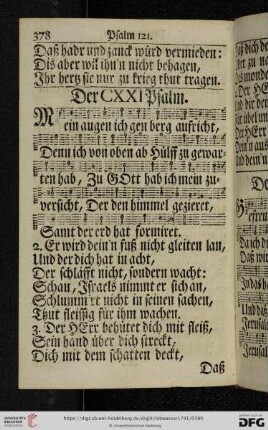 378 Psalm 121.
Daß hadr und zanck würd vermieden:
Dis aber wil ihn'n nicht behagen,
Ihr hertz sie nur zu krieg thut tragen.
Der CXXI Psalm.
Mein augen ich gen berg aufricht,
Denn ich von oben ab Hülff zu gewar-
ten hab, Zu GOtt hab ich mein zu-
versicht, Der den himmel gezieret,
Samt der erd hat formiret.
2. Er wird dein'n fuß nicht gleiten lan,
Und der dich hat in acht,
Der schläfft nicht, sondern wacht:
Schau, Israels nimmt er sich an,
Schlumm'rt nicht in seinen sachen,
Thut fleissig für ihm wachen.
3. Der HErr behütet dich mit fleiß,
Sein hand über dich streckt,
Dich mit dem schatten deckt,
Daß
UNIVERSITÄTS-
BIBLIOTHEK
HEIDELBERG
https://digi.ub.uni-heidelberg.de/diglit/lobwasser1791/0380
© Universitätsbibliothek Heidelberg
gefördert durch die
DFG